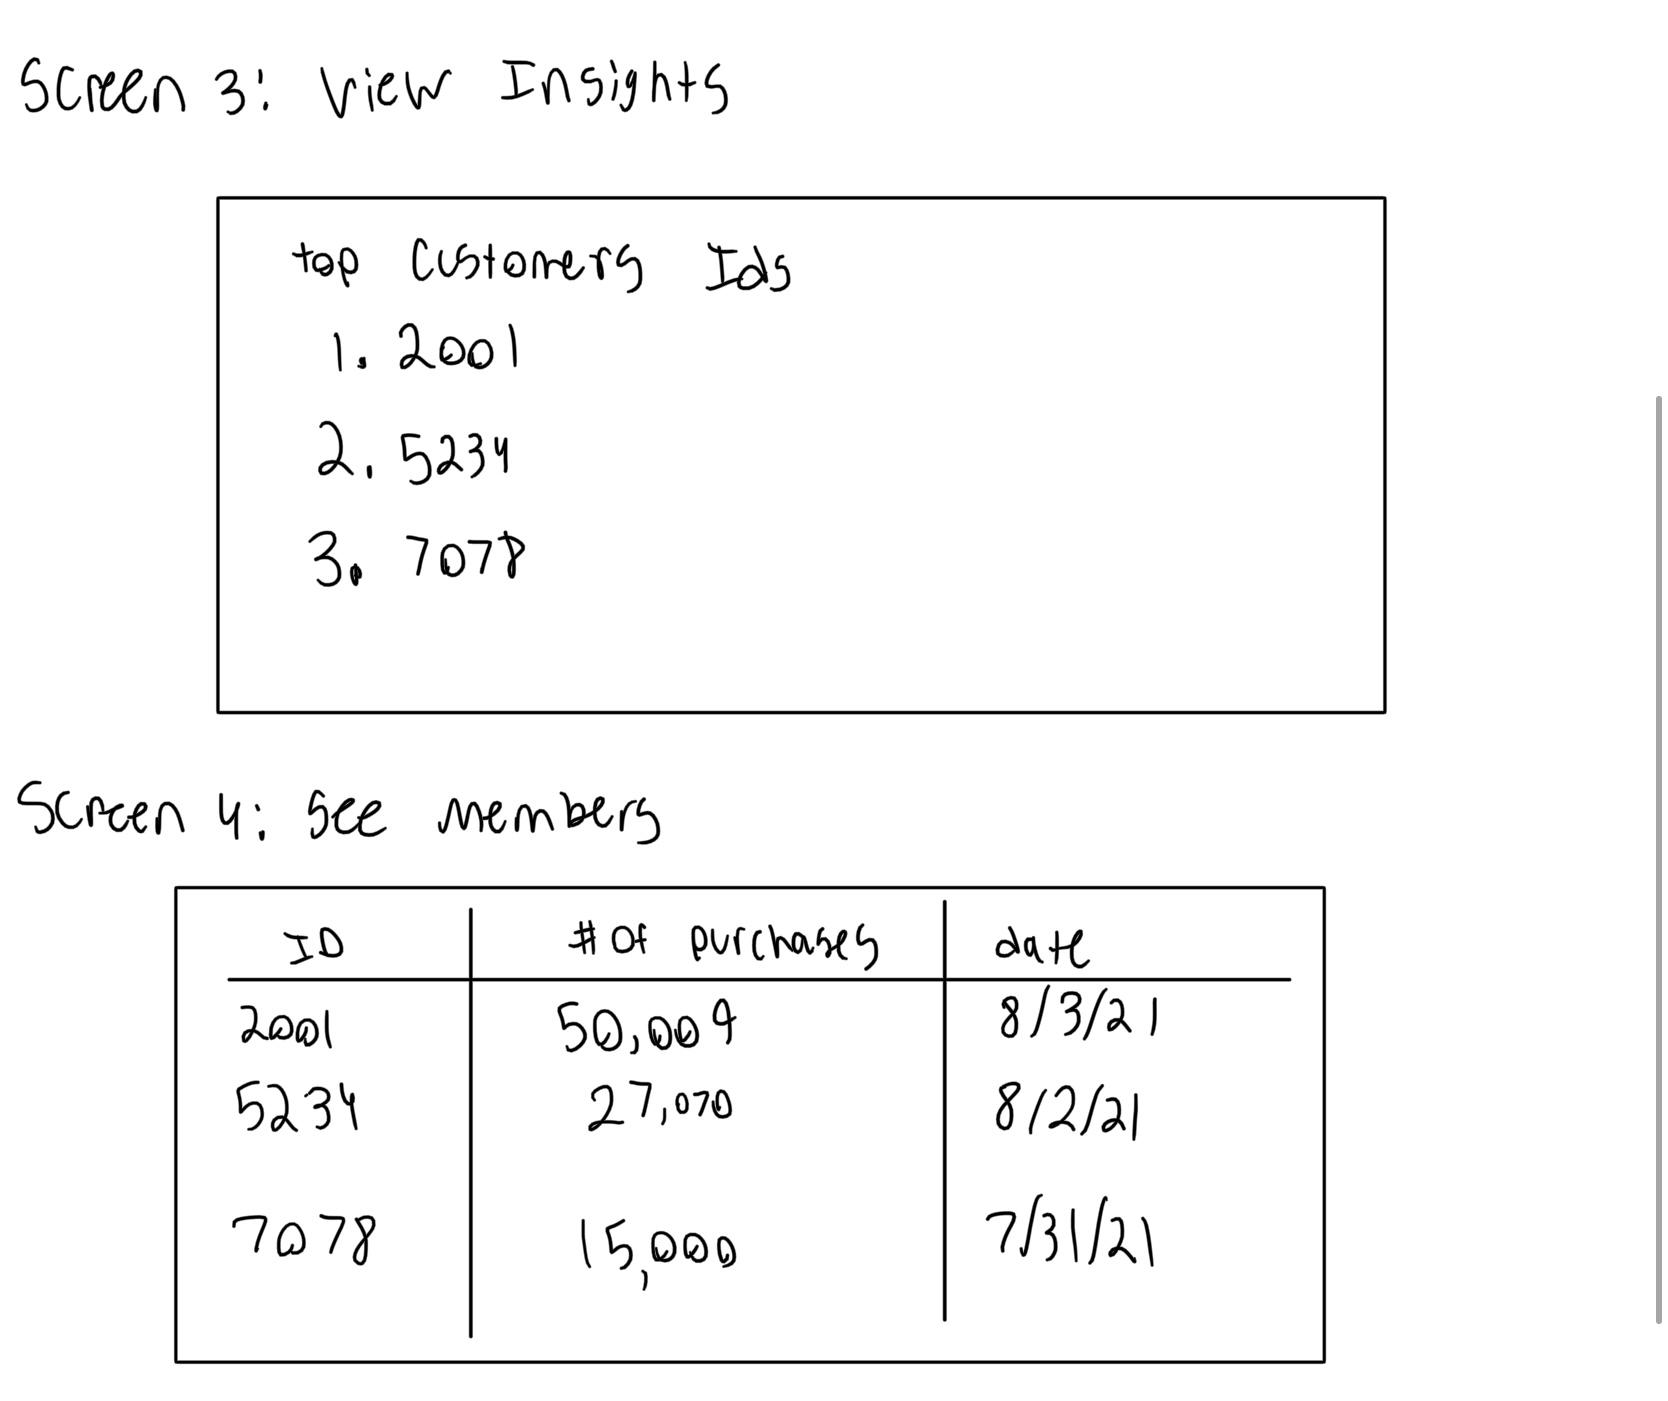 Screen 3: View Insights
top Customers Ids
1. 2001
2. 5234
3. 7078
Screen 4: See members
ID # of purchases date
2001 50,009 8/3/21
5234 27,070 8/2/21
7078 15,000 7/31/21